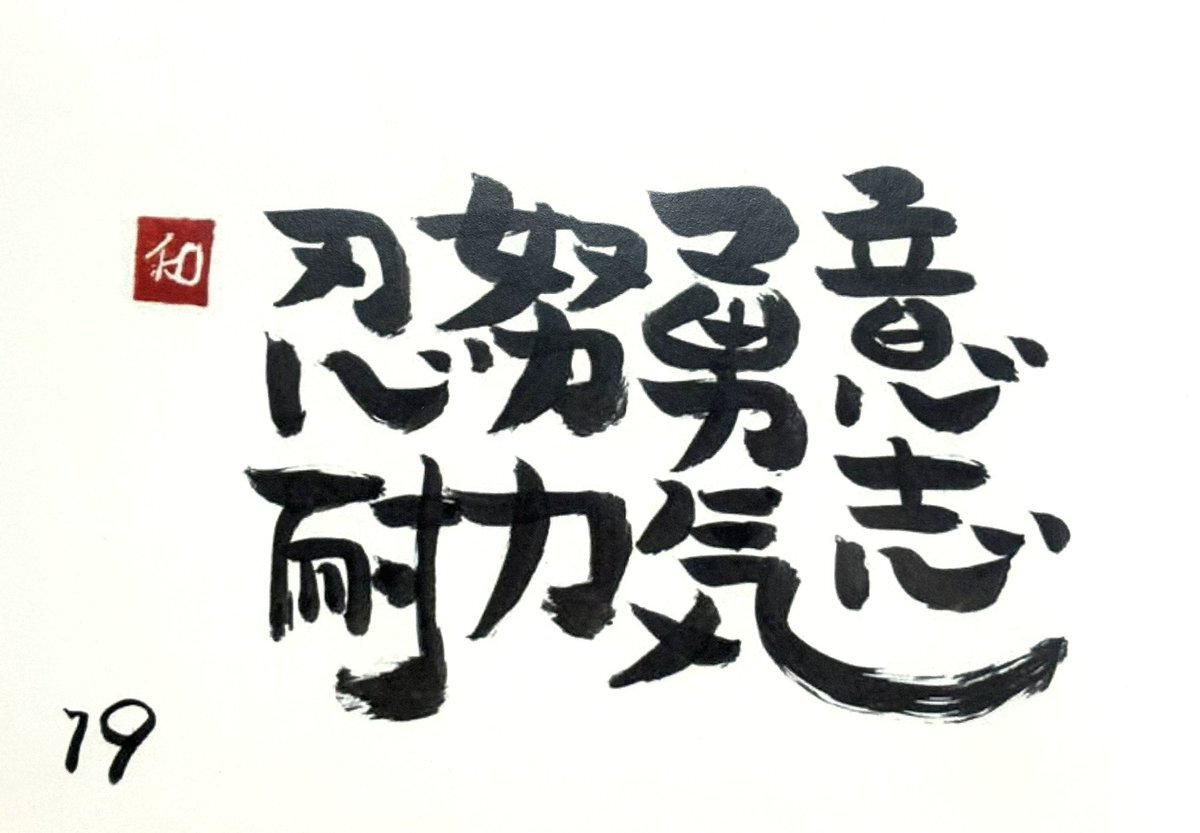 意志
勇気
努力
忍耐
和
79